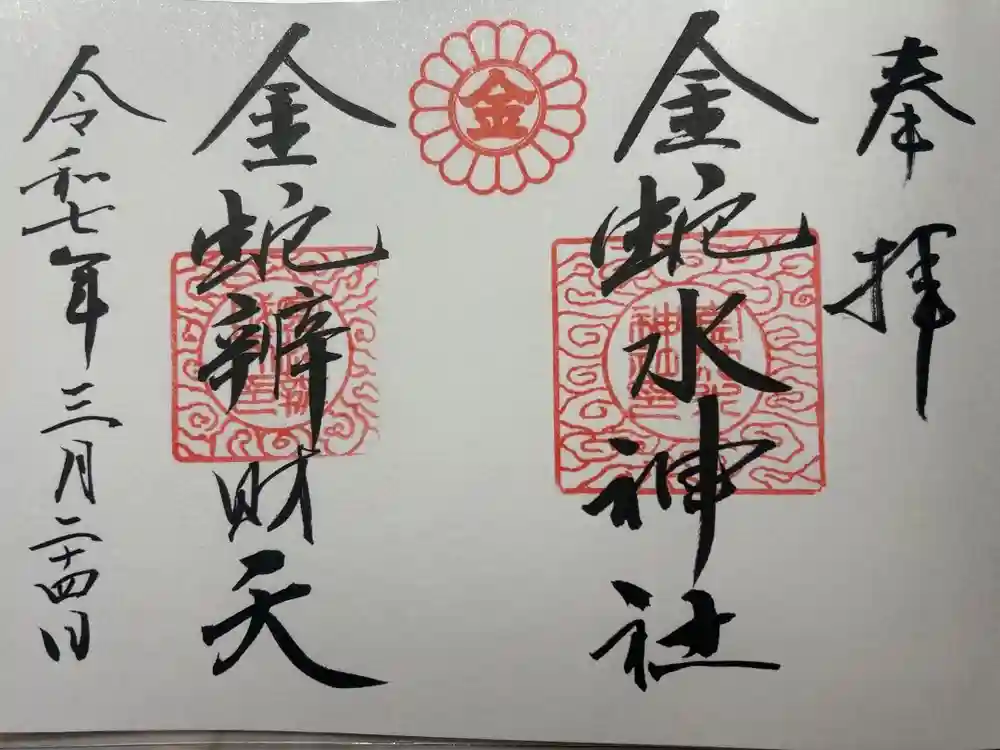 奉拝
金蛇水神社
金
金蛇辨財天
令和七年三月二十四日